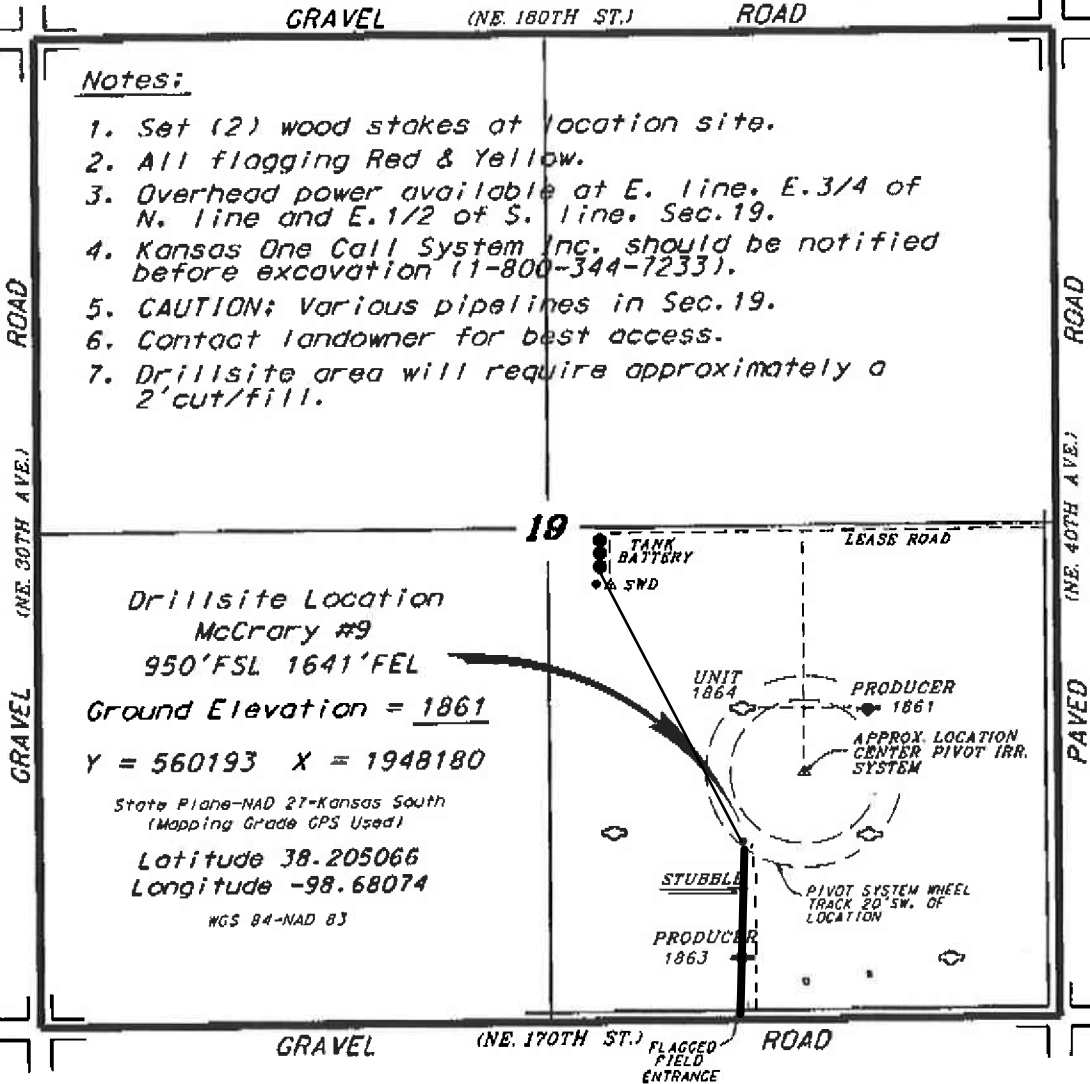 GRAVEL (NE. 180TH ST.) ROAD
Notes:
1. Set (2) wood stakes at location site.
2. All flagging Red & Yellow.
3. Overhead power available at E. line. E.3/4 of
N. line and E.1/2 of S. line. Sec.19.
4. Kansas One Call System Inc. should be notified
before excavation (1-800-344-7233).
5. CAUTION: Various pipelines in Sec.19.
6. Contact landowner for best access.
7. Drillsite area will require approximately a
2'cut/fill.
GRAVEL (NE. 30TH AVE.) ROAD
PAVED (NE. 40TH AVE.) ROAD
19
TANK
BATTERY
SWD
LEASE ROAD
Drillsite Location
McCrary #9
950'FSL 1641'FEL
Ground Elevation = 1861
Y = 560193 X = 1948180
State Plane-NAD 27-Kansas South
(Mapping Grade GPS Used)
Latitude 38.205066
Longitude -98.68074
WGS 84-NAD 83
UNIT
1864
PRODUCER
1861
APPROX. LOCATION
CENTER PIVOT IRR.
SYSTEM
STUBBLE
PIVOT SYSTEM WHEEL
TRACK 20'SW. OF
LOCATION
PRODUCER
1863
GRAVEL (NE. 170TH ST.) ROAD
FLAGGED
FIELD
ENTRANCE